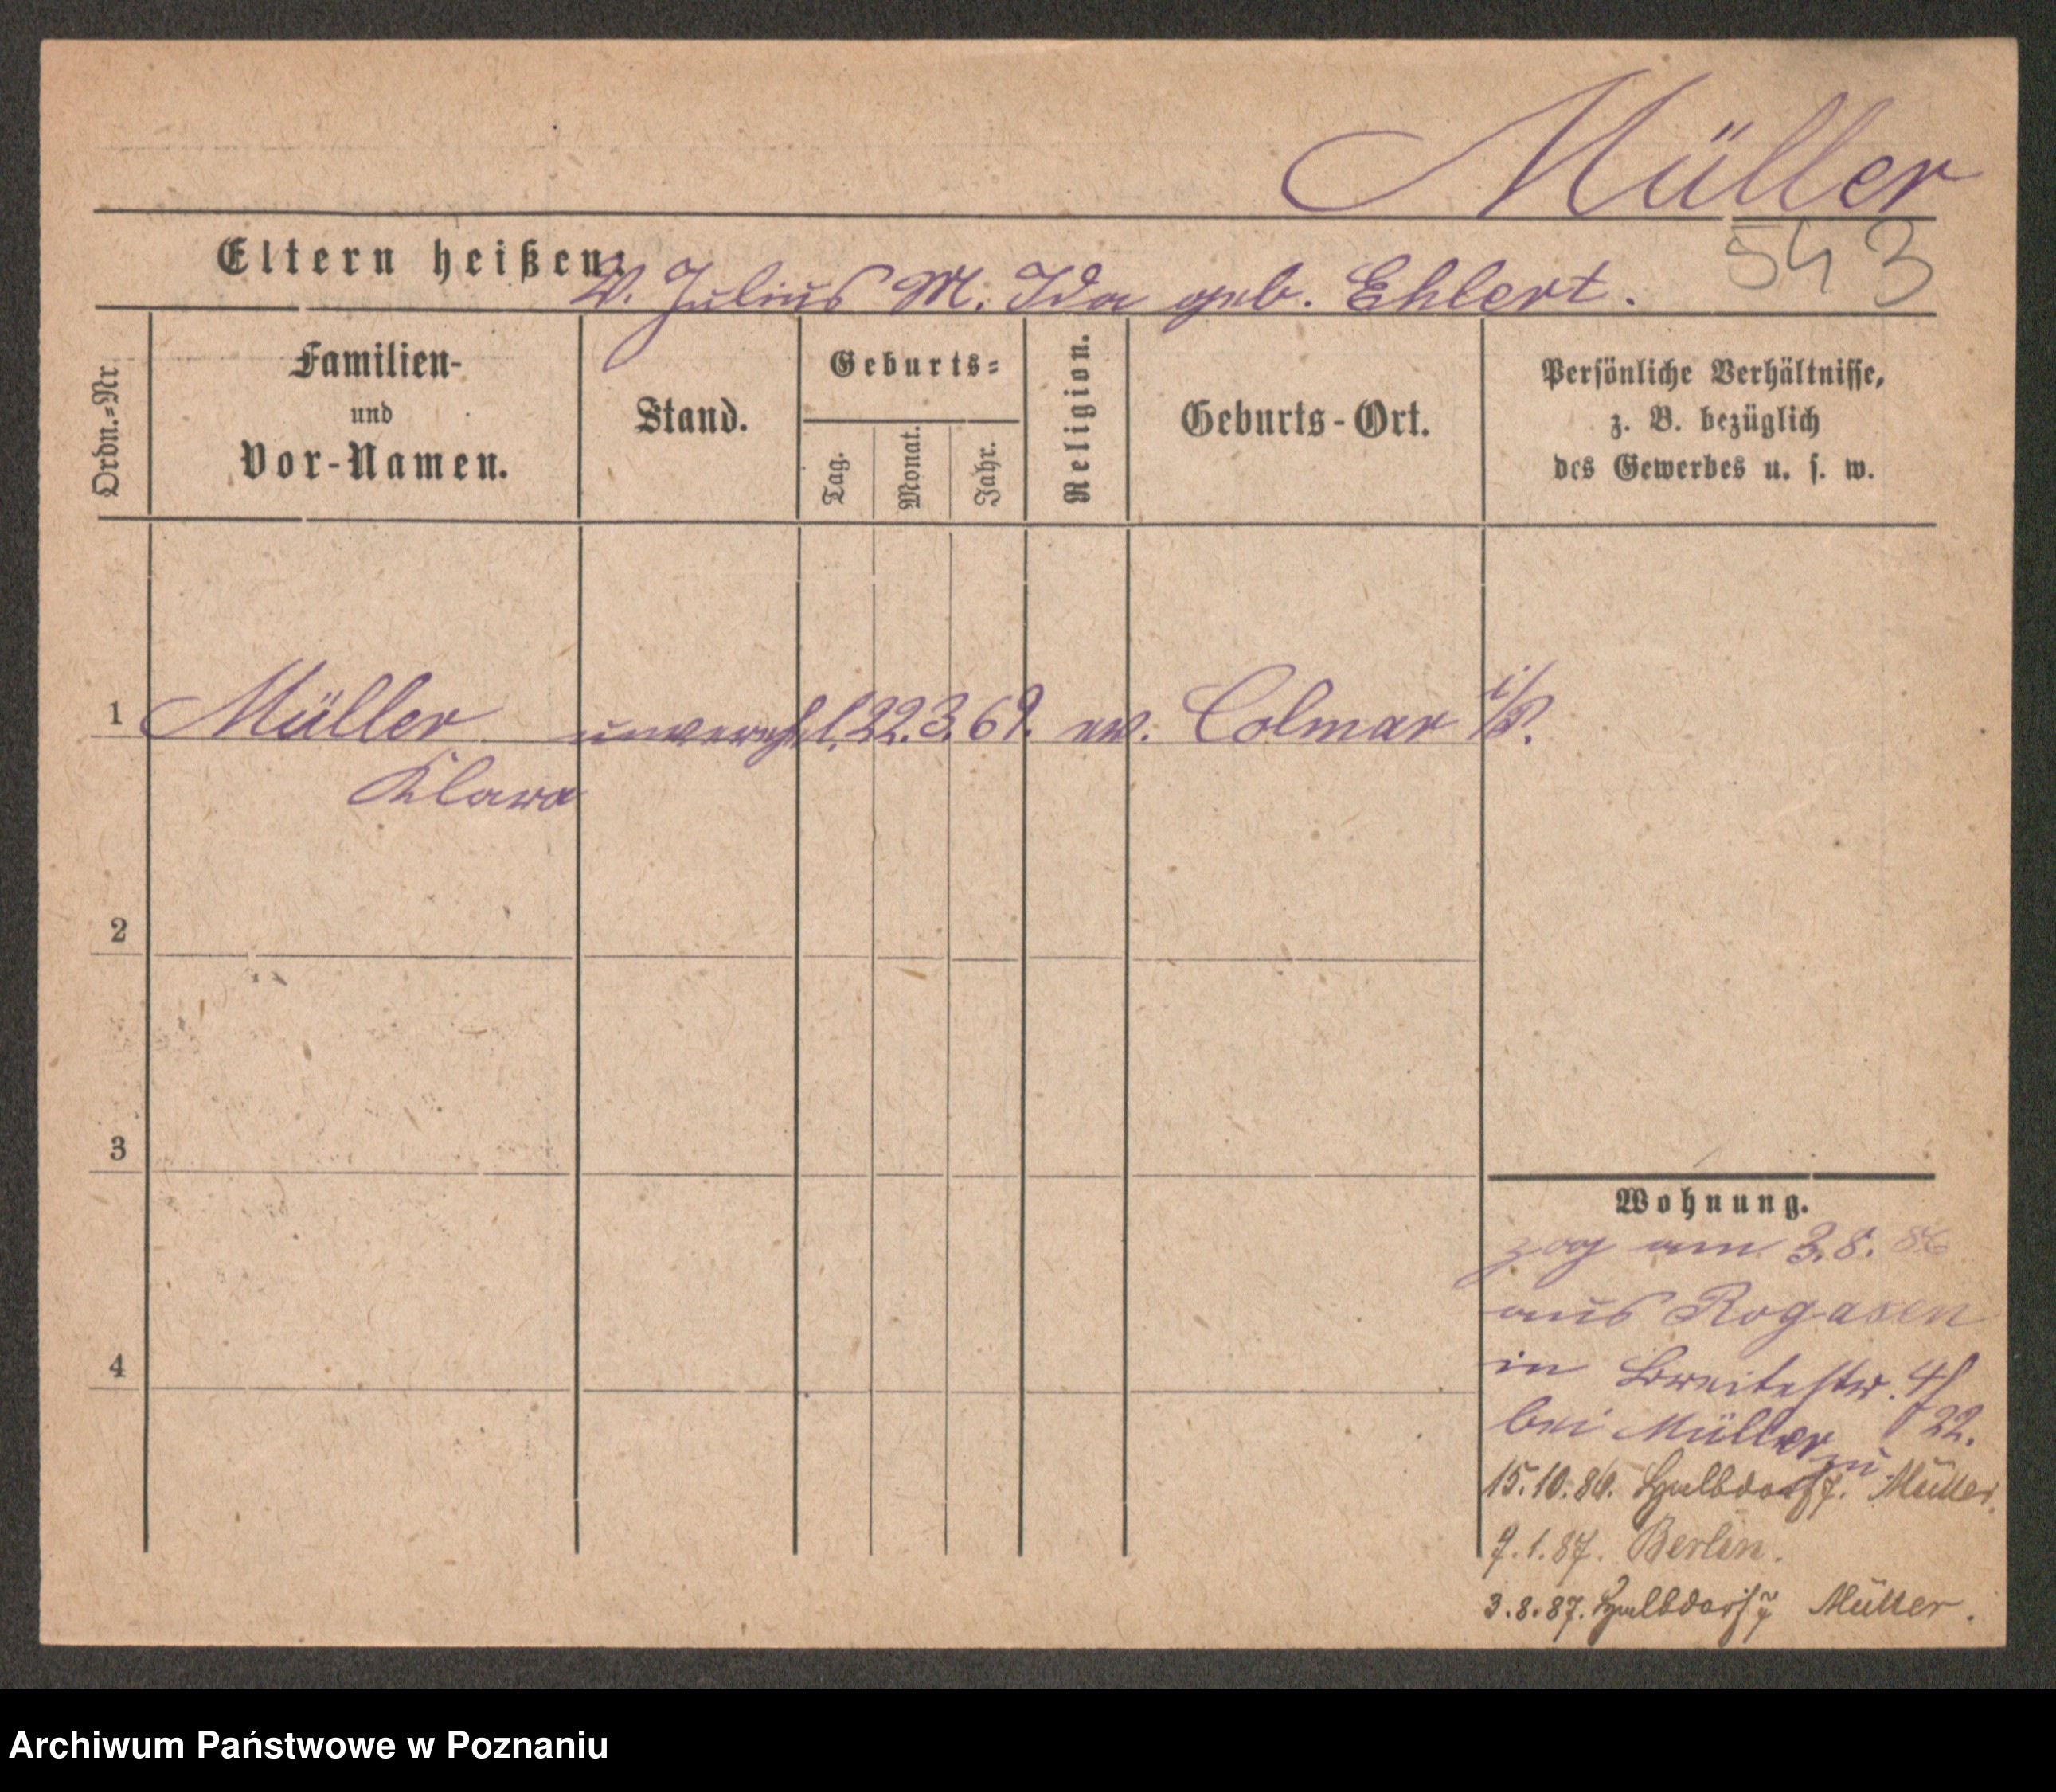 Müller
543
Eltern heißen: V. Julius M. Ida geb. Ehlert.
Ordn.=Nr.
Familien-
und
Vor-Namen.
Stand.
Geburts=
Tag.
Monat.
Jahr.
Religion.
Geburts-Ort.
Persönliche Verhältnisse,
z. B. bezüglich
des Gewerbes u. s. w.
1 Müller unverehl. 22. 3. 69. ev. Colmar i/P.
Klara
2
3
4
Wohnung.
zog am 3.8. 86
aus Rogasen
in Breitestr.
bei Müller 22.
zu
15.10.86. Halbdorf 7. Müller.
7.1.87. Berlin.
3.8.87. Halbdorf 7 Müller.
Archiwum Państwowe w Poznaniu